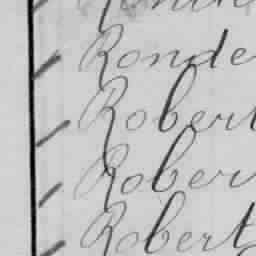 Ronde
Robert
Rober
Robert